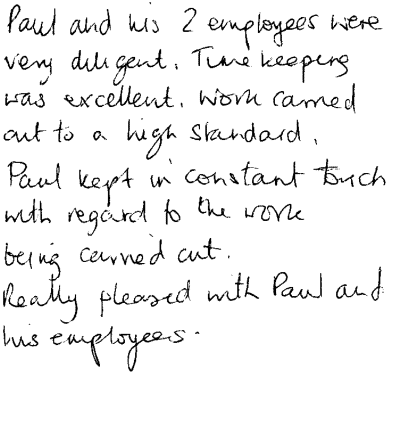 Paul and his 2 employees were
very diligent. Time keeping
was excellent. Work carried
out to a high standard.
Paul kept in constant touch
with regard to the work
being carried out.
Really pleased with Paul and
his employees.